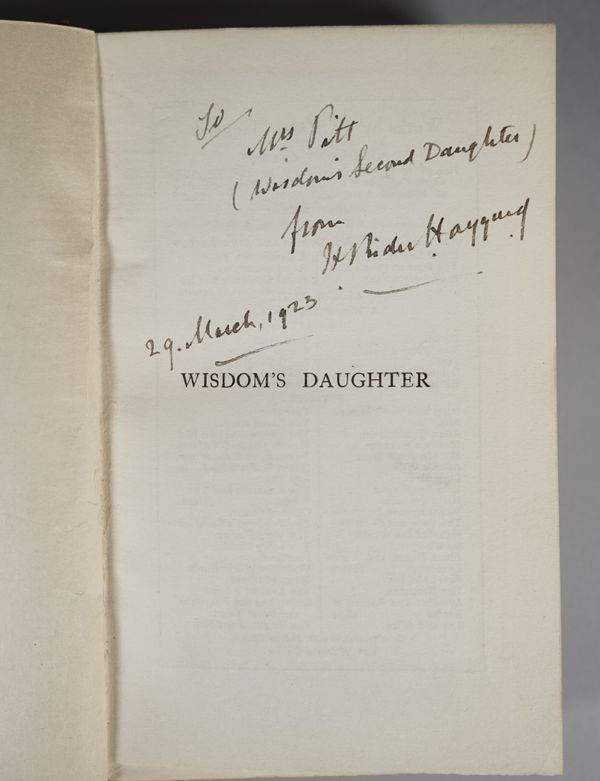 To
Mrs Pitt
(Wisdom's Second Daughter)
from
H Rider Haggard
29. March, 1923
WISDOM'S DAUGHTER